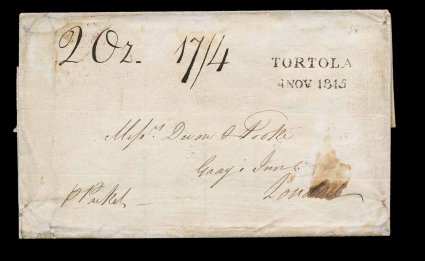 2 Oz. 17/4
TORTOLA
4 NOV 1815
Messrs. Devon & Tooke
Gray's Inn
London
p Packet